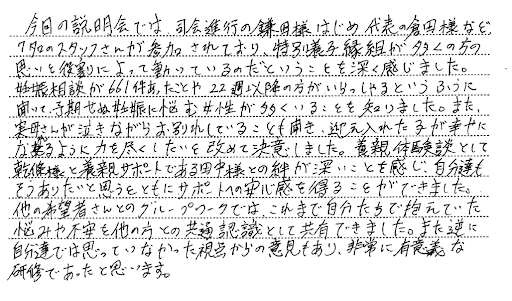 今日の説明会では、司会進行の鎌田様はじめ代表の倉田様など、
7名のスタッフさんが参加されており、特別養子縁組が多くの方の
思いと役割によって動いているのだということを深く感じました。
妊娠相談が661件あったことや22週以降の方がいらっしゃるというふうに
聞いて、予期せぬ妊娠に悩む女性が多くいることを知りました。また、
実母さんが泣きながらお別れしていることも聞き、迎え入れた子が幸せに
なれるように力を尽くしたいと改めて決意しました。養親体験談として
乾様と養親サポートである田中様との絆が深いことを感じ、自分達も
そうありたいと思うとともにサポートへの安心感を得ることができました。
他の希望者さんとのグループワークでは、これまで自分たちで抱えていた
悩みや不安を他の方との共通認識として共有できました。また逆に
自分達では思っていなかった視点からの意見もあり、非常に有意義な
研修であったと思います。